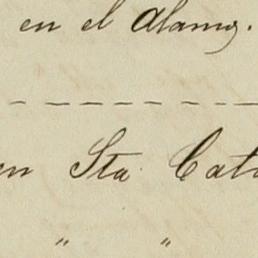 en el Alamo.
en Sta Cata
" "